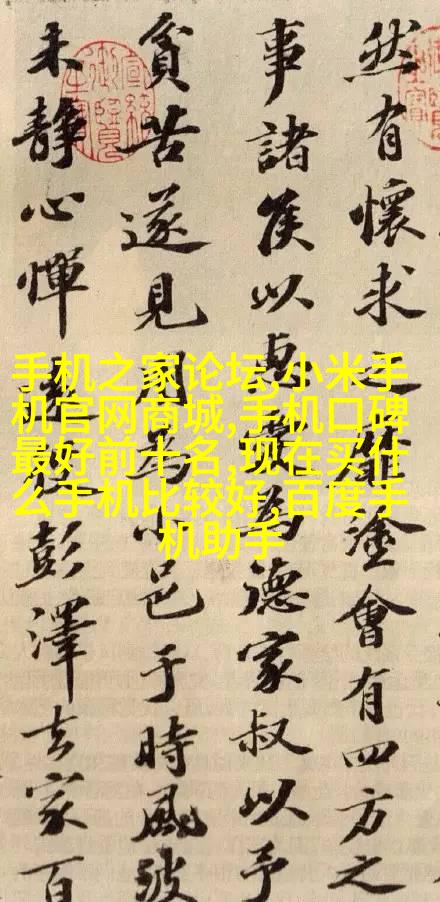 然有懷求之靡塗會有四方之
事諸侯以惠愛為德家叔以予
貧苦遂見用為小邑于時風波
未靜心憚遠役彭澤去家百
手机之家论坛,小米手
机官网商城,手机口碑
最好前十名,现在买什
么手机比较好,百度手
机助手